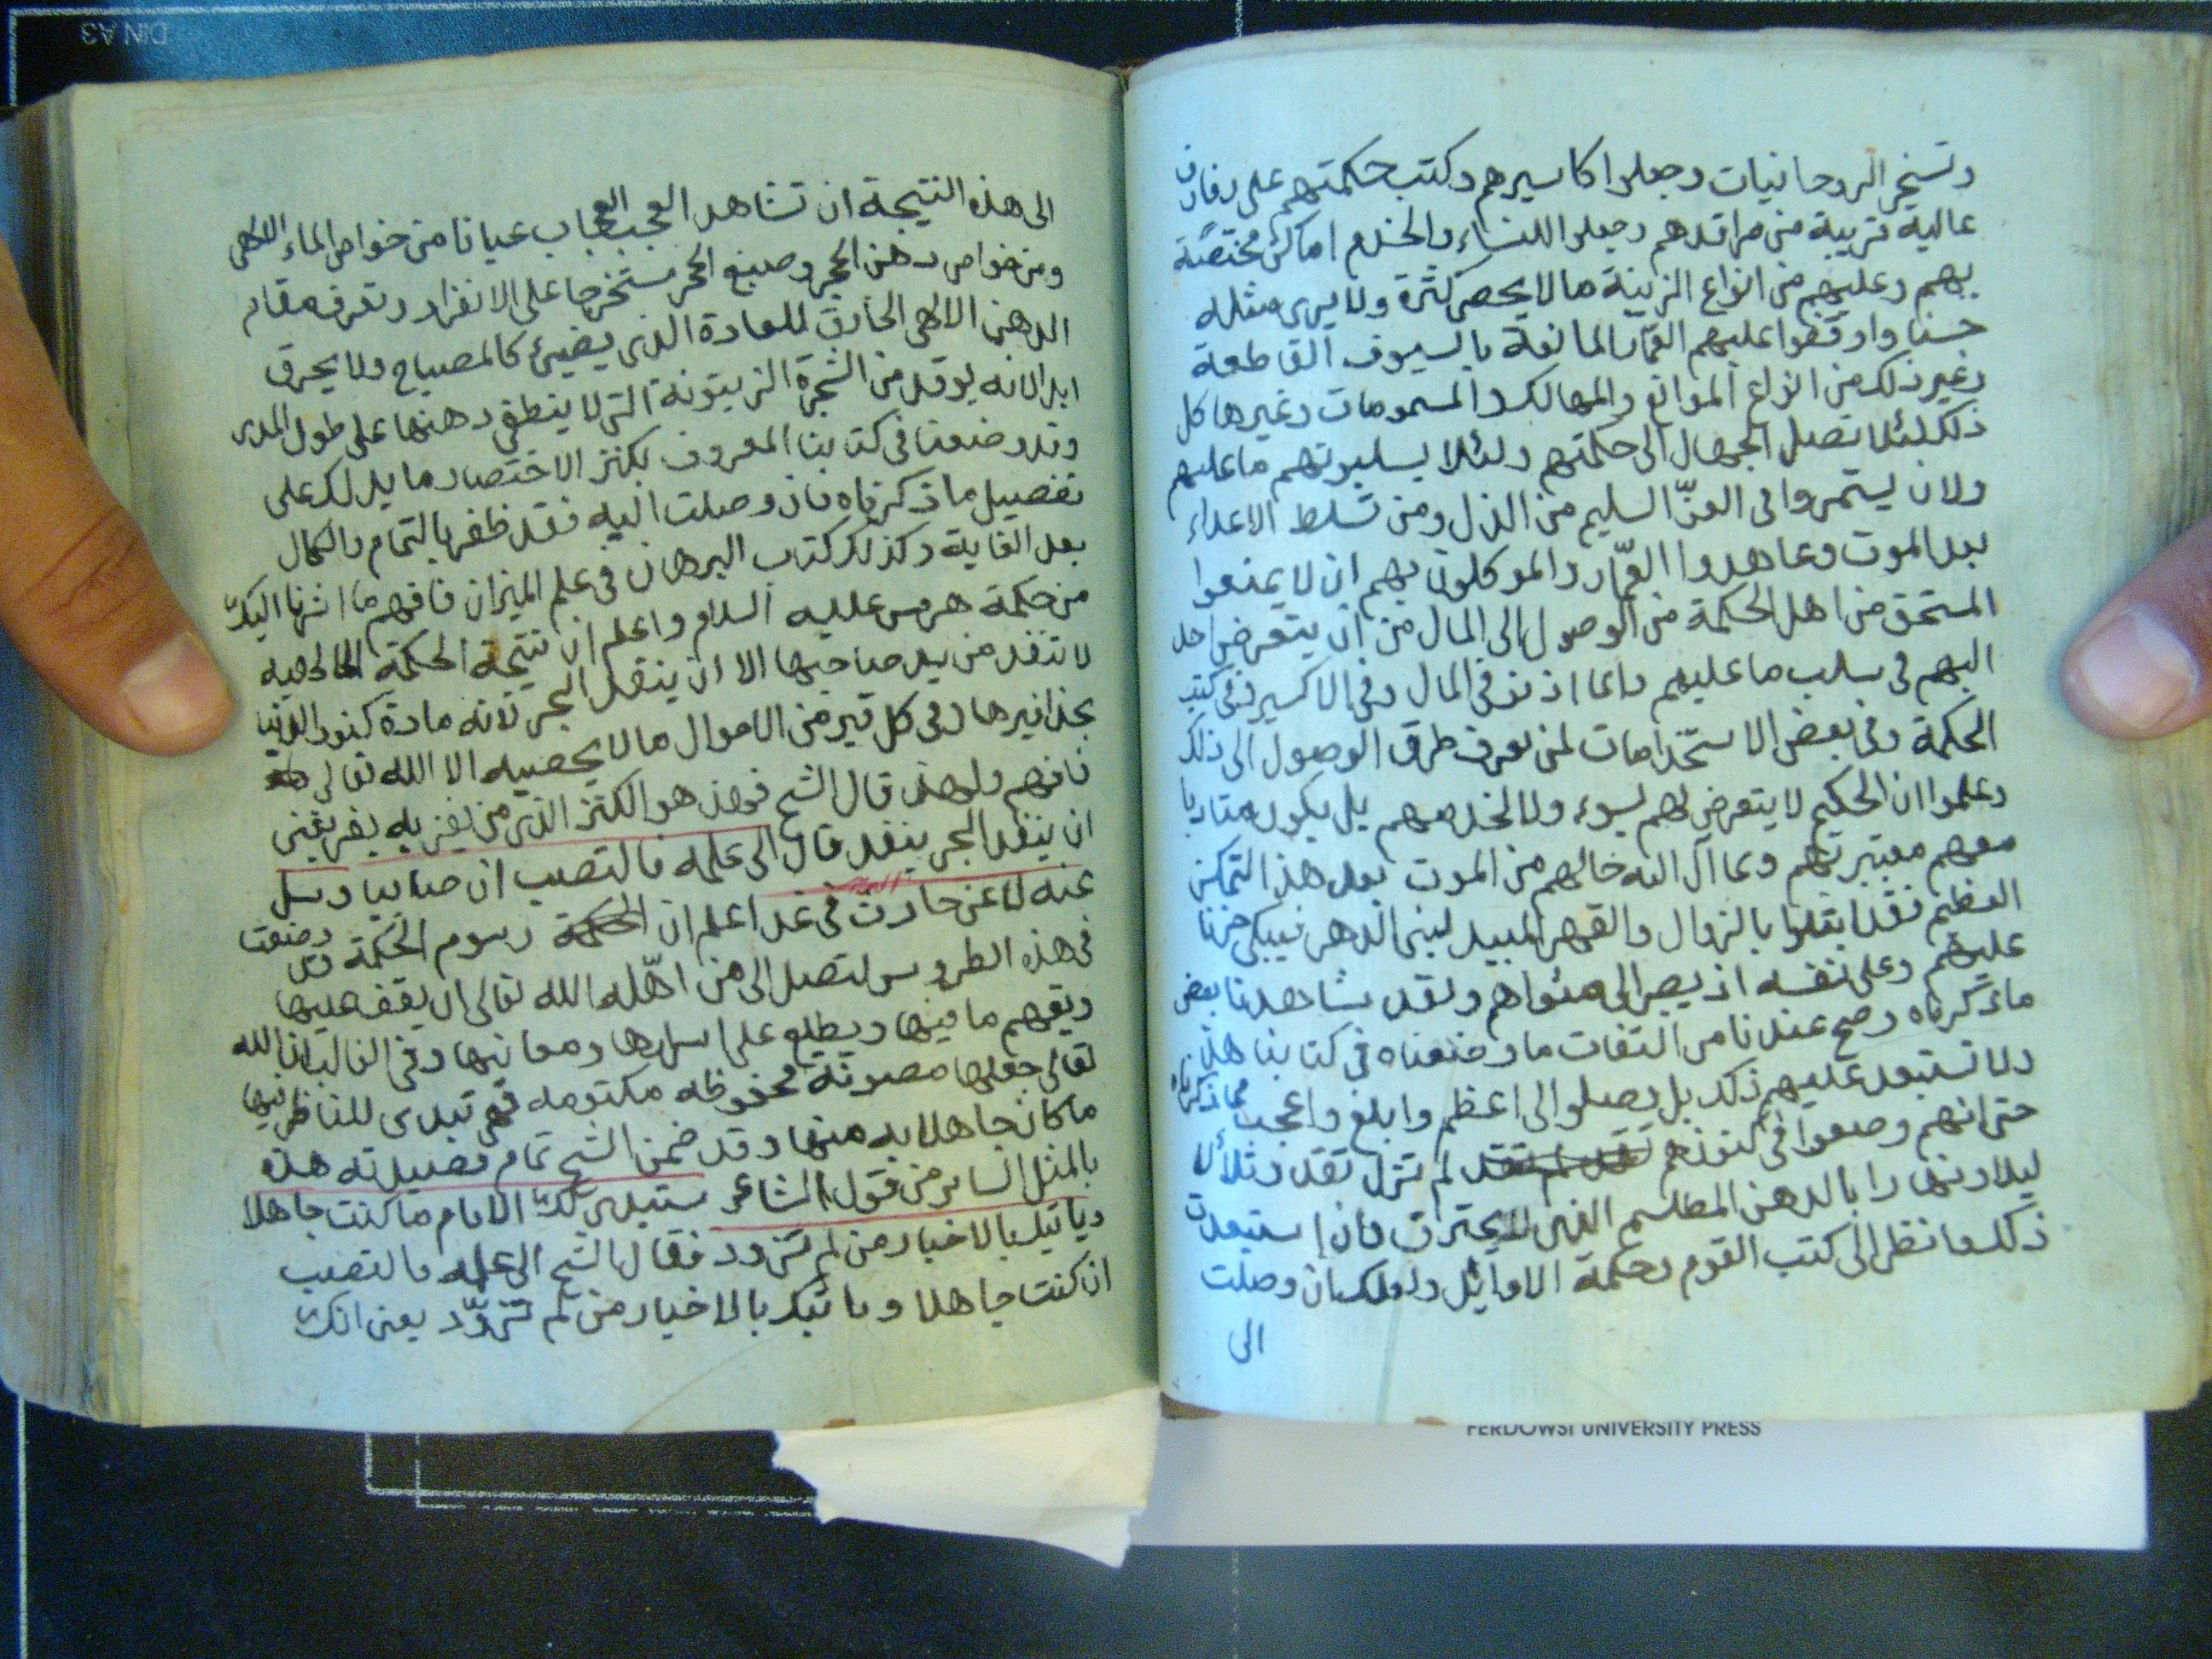 وتسخير الروحانيات وجعلوا اكاسيرهم وكتب حكمتهم على رفارف
عالية قريبة من مراقدهم وجعلوا للنساء والخدم اماكن مختصة
بهم وعليهم من انواع الزينة ما لا يحصى كثرة ولا يرى مثله
حسنا واوقفوا عليهم العمار المانعة بالسيوف القاطعة
وغير ذلك من انواع الموانع والمهالك والمسمومات وغيرها كل
ذلك لئلا تصل الجهال الى حكمتهم ولئلا يسلبونهم ما عليهم
ولان يستمروا فى العزّ السليم من الذل ومن تسلط الاعداء
بعد الموت وعاهدوا العمّار والموكلون بهم ان لا يمنعوا
المستحق من اهل الحكمة من الوصول الى المال من ان يتعرض احد
اليهم فى سلب ما عليهم وانما اذنو فى المال وفى الاكسير وفى كتب
الحكمة وفى بعض الاستخدامات لمن يعرف طرق الوصول الى ذلك
وعلموا ان الحكيم لا يتعرض لهم بسوء ولا لخدمهم بل يكون متادبا
معهم معتبرتهم وبما آل اليه حالهم من الموت بعد هذا التمكن
العظيم فقد ابتلوا بالزوال والقهر المبيد لبنى الدهر فيبكى حزنا
عليهم وعلى نفسه اذ يصير الى مثواهم ولقد شاهدنا بعض
ما ذكرناه وصح عندنا من الثقات ما وضعناه فى كتابنا هذا
ولا تستبعد عليهم ذلك بل وصلوا الى اعظم وابلغ واعجب مما ذكرناه
حتى انهم وضعوا فى كنوزهم لم تزل تقد وتتلألأ
ليلا ونهارا بالدهن المطلسم الذى لا يحترق وان استبعدت
ذلك فانظر الى كتب القوم وحكمة الاوايل ولعلك ان وصلت
الى
الى هذه النتيجة ان تشاهد العجب العجاب عيانا من خواص الماء الالهى
ومن خواص دهن الحجر وصبغ الحجر مستخرجا على الانفراد وتعرف مقام
الدهن الالهى الخارق للعادة الذى يضيئ كالمصباح ولا يحرق
ابدا لانه يوقد من الشجرة الزيتونة التى لا ينطفى دهنها على طول المدى
وقد وضعنا فى كتابنا المعروف بكنز الاختصار ما يدلك على
تفصيل ما ذكرناه فان وصلت اليه فقد ظفر بالتمام والكمال
بعد الغاية وكذلك كتاب البرهان فى علم الميزان فافهم ما اشرنا اليك
من حكمة هرمس عليه السلام واعلم ان نتيجة الحكمة الالهية
لا تنفد من يد صاحبها الا ان ينفد البحر لانه مادة كنوز الدنيا
بحذافيرها وفى كل قير من الاموال ما لا يحصيه الا الله تعالى
فافهم ولهذا قال الشيخ فهذا هو الكنز الذى من يفز به يفز بغنى
ان ينفد البحر ينفد قال الى علمه فالتصب ان صابيا وسل
عنه لا عن حادث فى غد اعلم ان الحكمة رسوم الحكمة قد وضعت
فى هذه الطروس لتصل الى من اهّله الله تعالى ان يقف عليها
ويفهم ما فيها ويطلع على اسرارها ومعانيها وفى الغالب ان الله
تعالى جعلها مصونة محفوظه مكتومه فهى تبدى للناظر فيها
ما كان جاهلا به منها وقد ضمن الشيخ تمام قصيدته هذه
بالمثل الساير من قول الشاعر ستبدى لك الايام ما كنت جاهلا
وياتيك بالاخبار من لم تزود فقال الشيخ الى علمه فالتصب
ان كنت جاهلا وياتيك بالاخبار من لم تزوّد يعنى انك
FERDOWSI UNIVERSITY PRESS
DIN A3